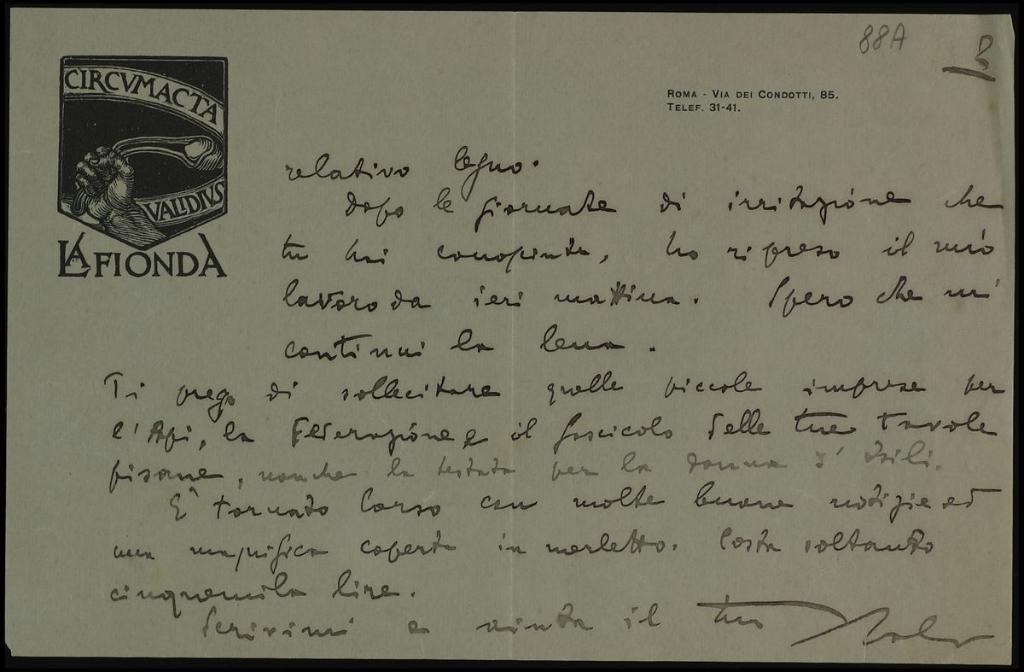 88A
CIRCVMACTA
VALIDIVS
LA FIONDA
ROMA - VIA DEI CONDOTTI, 85.
TELEF. 31-41.
relativo legno.
Dopo le giornate di irritazione che
tu hai conosciuta, ho ripreso il mio
lavoro da ieri mattina. Spero che mi
continui la lena.
Ti prego di sollecitare quelle piccole imprese per
l'Api, la Federazione e il fascicolo delle tue tavole
pisane, nonche la testata per la donna d'
È tornato Corso con molte buone notizie ed
una magnifica coperta in merletto. Costa soltanto
cinquemila lire.
Scrivimi e aiuta il tuo